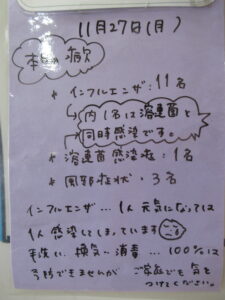 11月27日(月)
本日の病欠
* インフルエンザ:11名
→内1名は溶連菌と
→同時感染です。
* 溶連菌感染症:1名
* 風邪症状・3名
インフルエンザ…1人元気になっては
1人感染してしまっています
手洗い、換気、消毒…100%は
予防できませんが ご家庭でも気を
つけてください